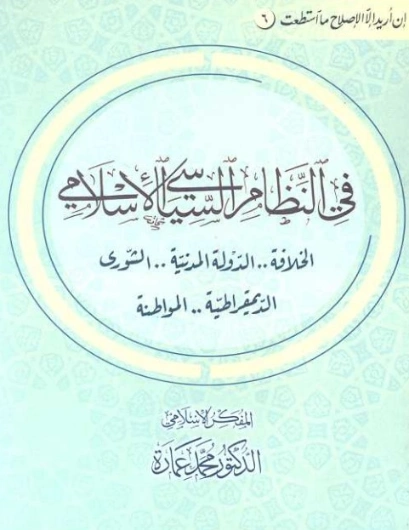 إن أريد إلا الإصلاح ما استطعت ٦
في النظام السياسي الإسلامي
الخلافة .. الدولة المدنية .. الشورى
الديمقراطية .. المواطنة
المفكر الإسلامي
الدكتور محمد عمارة